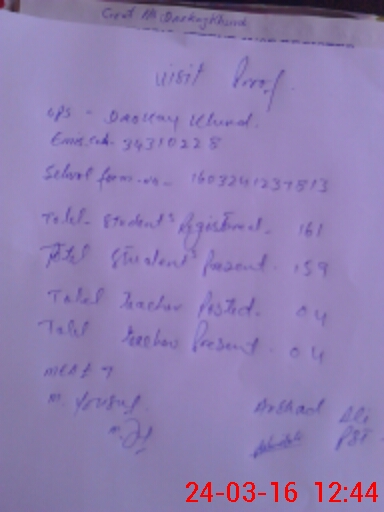 Govt. Ps. Darkay Khund
Visit Proof.
GPS - Darkay Khund.
Emis. code. 34310228
School form. no. - 1603241237813
Total. Student's Registered. 161
Total Student's Present. 159
Total Teacher Posted. 04
Total Teacher Present. 04
M&EA
M. Yousuf. Arshad Ali
PST
24-03-16 12:44